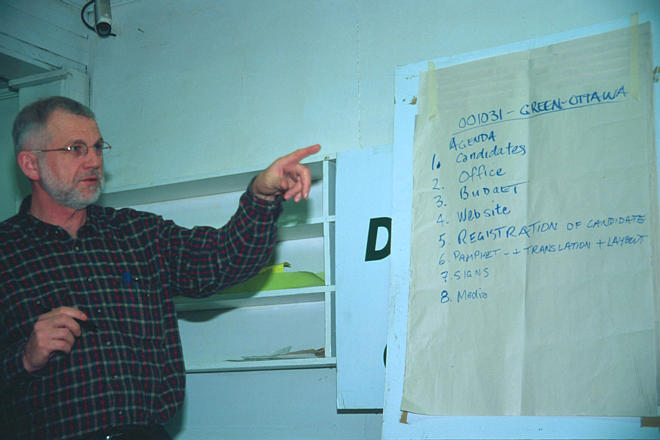 001031 - GREEN-OTTAWA
AGENDA
1. Candidates
2. Office
3. BUDGET
4. Website
5. REGISTRATION OF CANDIDATE
6. PAMPHET - + TRANSLATION + LAYOUT
7. SIGNS
8. Media
D